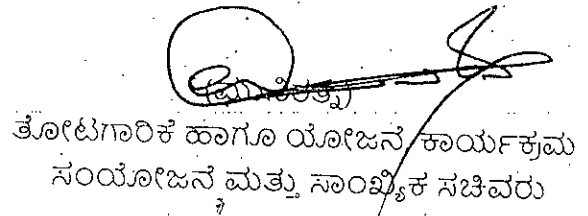 ತೋಟಗಾರಿಕೆ ಹಾಗೂ ಯೋಜನೆ, ಕಾರ್ಯಕ್ರಮ
ಸಂಯೋಜನೆ ಮತ್ತು ಸಾಂಖ್ಯಿಕ ಸಚಿವರು